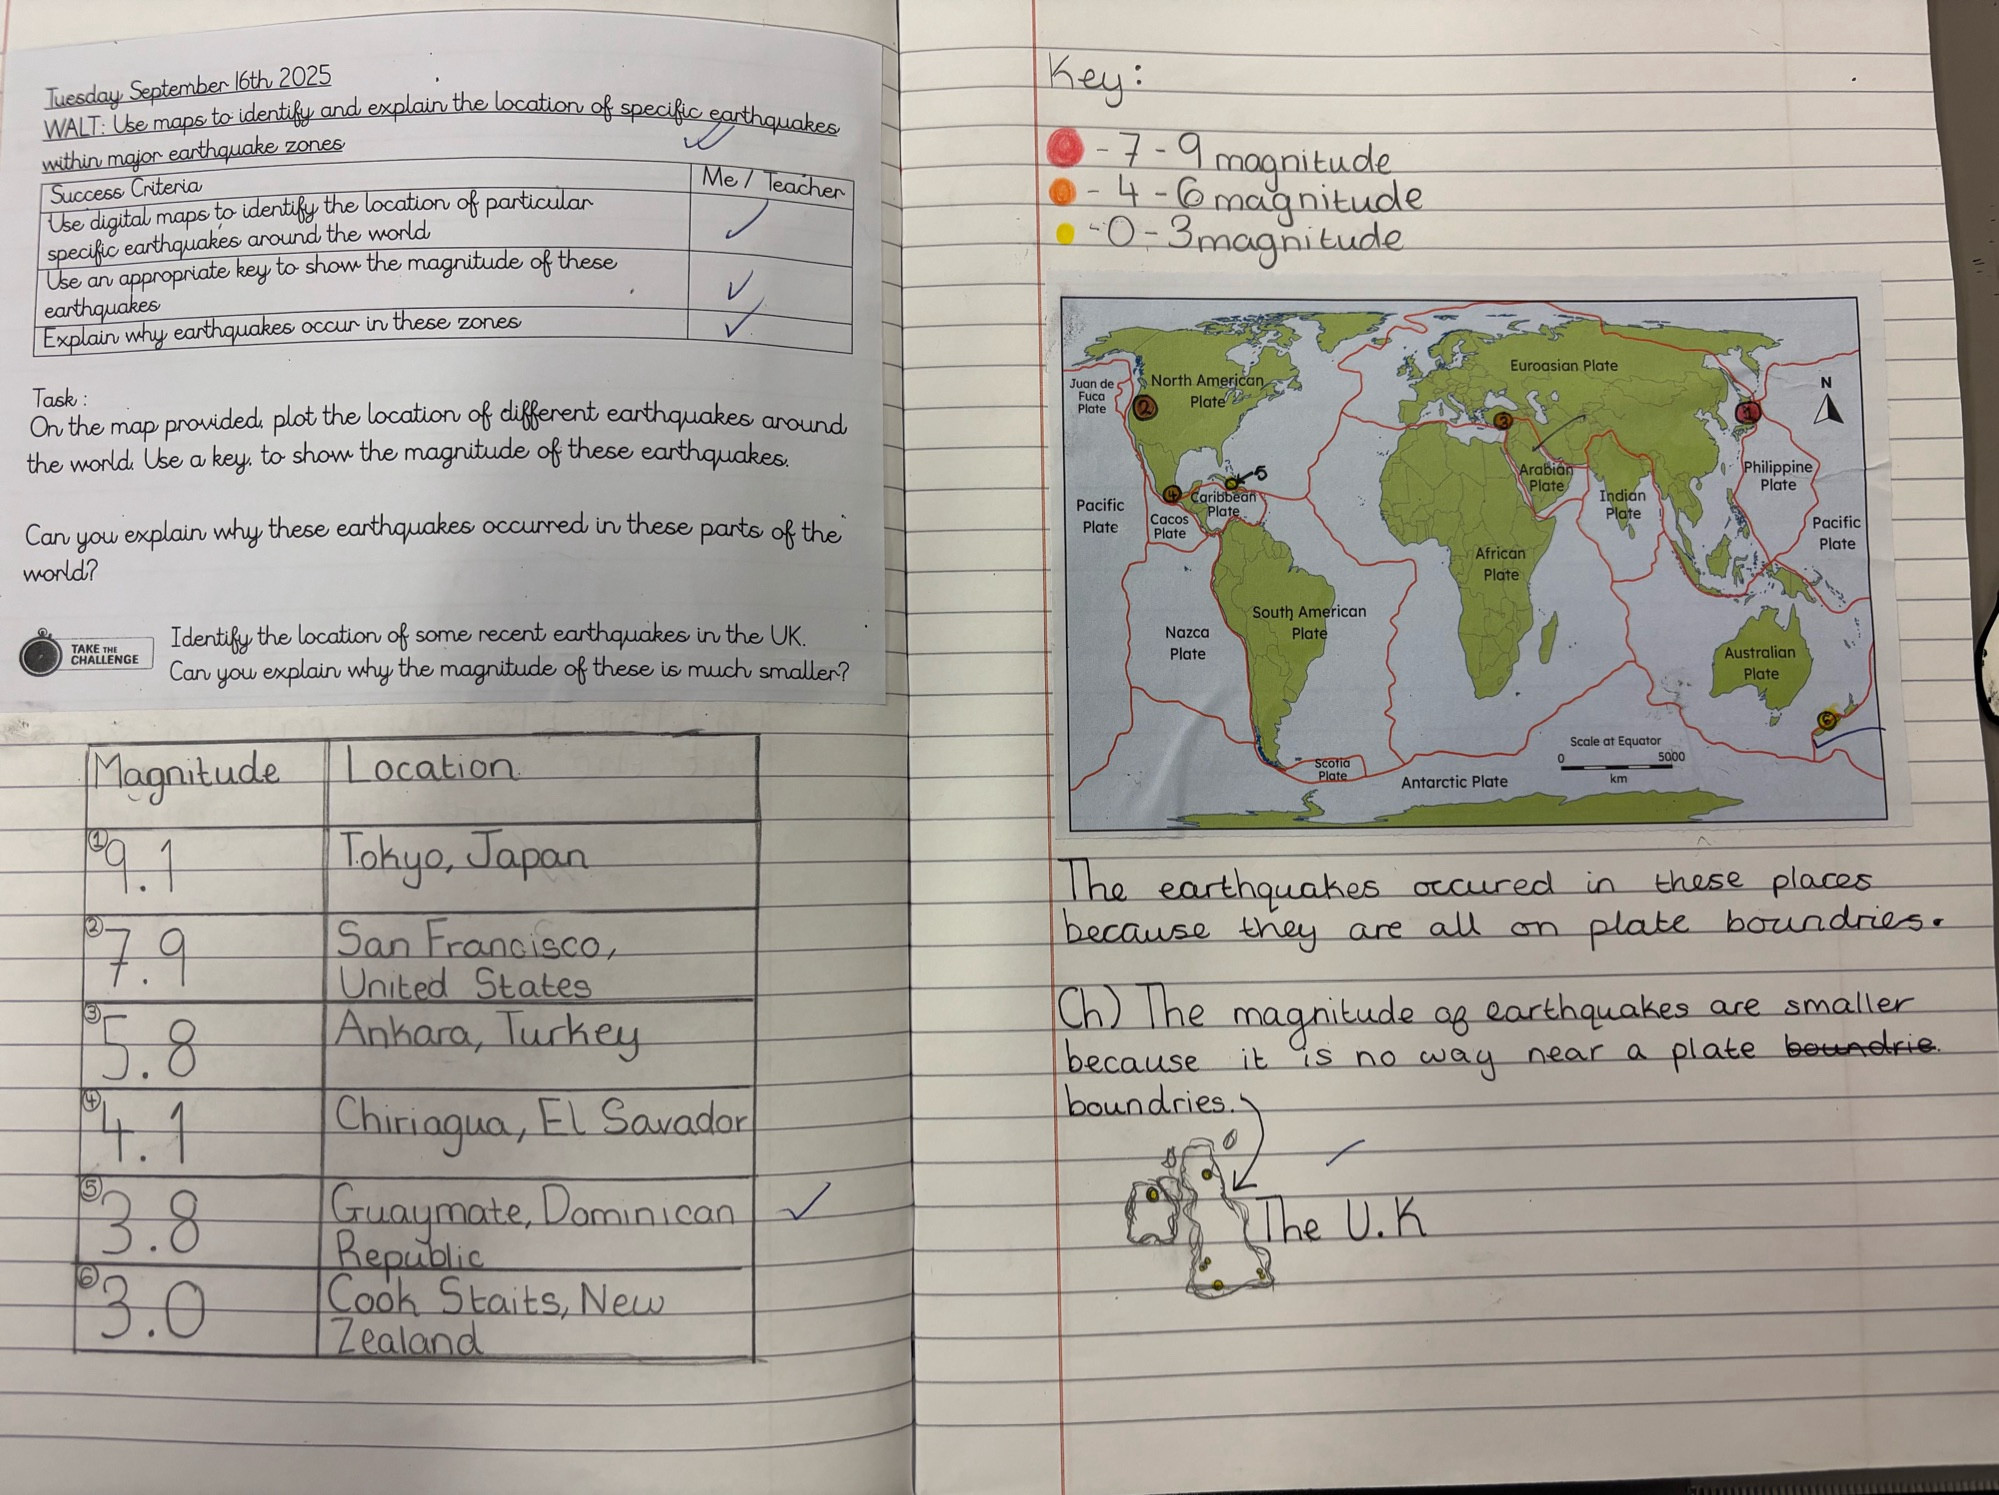 Tuesday September 16th 2025
WALT: Use maps to identify and explain the location of specific earthquakes
within major earthquake zones
Success Criteria
Me / Teacher
Use digital maps to identify the location of particular
specific earthquakes around the world
Use an appropriate key to show the magnitude of these
earthquakes
Explain why earthquakes occur in these zones
Task:
On the map provided, plot the location of different earthquakes around
the world. Use a key, to show the magnitude of these earthquakes.
Can you explain why these earthquakes occurred in these parts of the
world?
TAKE THE
CHALLENGE
Identify the location of some recent earthquakes in the UK.
Can you explain why the magnitude of these is much smaller?
Magnitude
Location
1
9.1
Tokyo, Japan
2
7.9
San Francisco,
United States
3
5.8
Ankara, Turkey
4
4.1
Chiriagua, El Savador
5
3.8
Guaymate, Dominican
Republic
6
3.0
Cook Staits, New
Zealand
Key:
- 7 - 9 magnitude
- 4 - 6 magnitude
- 0 - 3 magnitude
Juan de
Fuca
Plate
North American
Plate
Euroasian Plate
N
2
3
1
4
5
Caribbean
Plate
Arabian
Plate
Indian
Plate
Philippine
Plate
Pacific
Plate
Cacos
Plate
Pacific
Plate
African
Plate
South American
Plate
Nazca
Plate
Australian
Plate
6
Scale at Equator
0
5000
km
Scotia
Plate
Antarctic Plate
The earthquakes occured in these places
because they are all on plate boundries.
Ch) The magnitude of earthquakes are smaller
because it is no way near a plate boundrie.
boundries.
The U.K